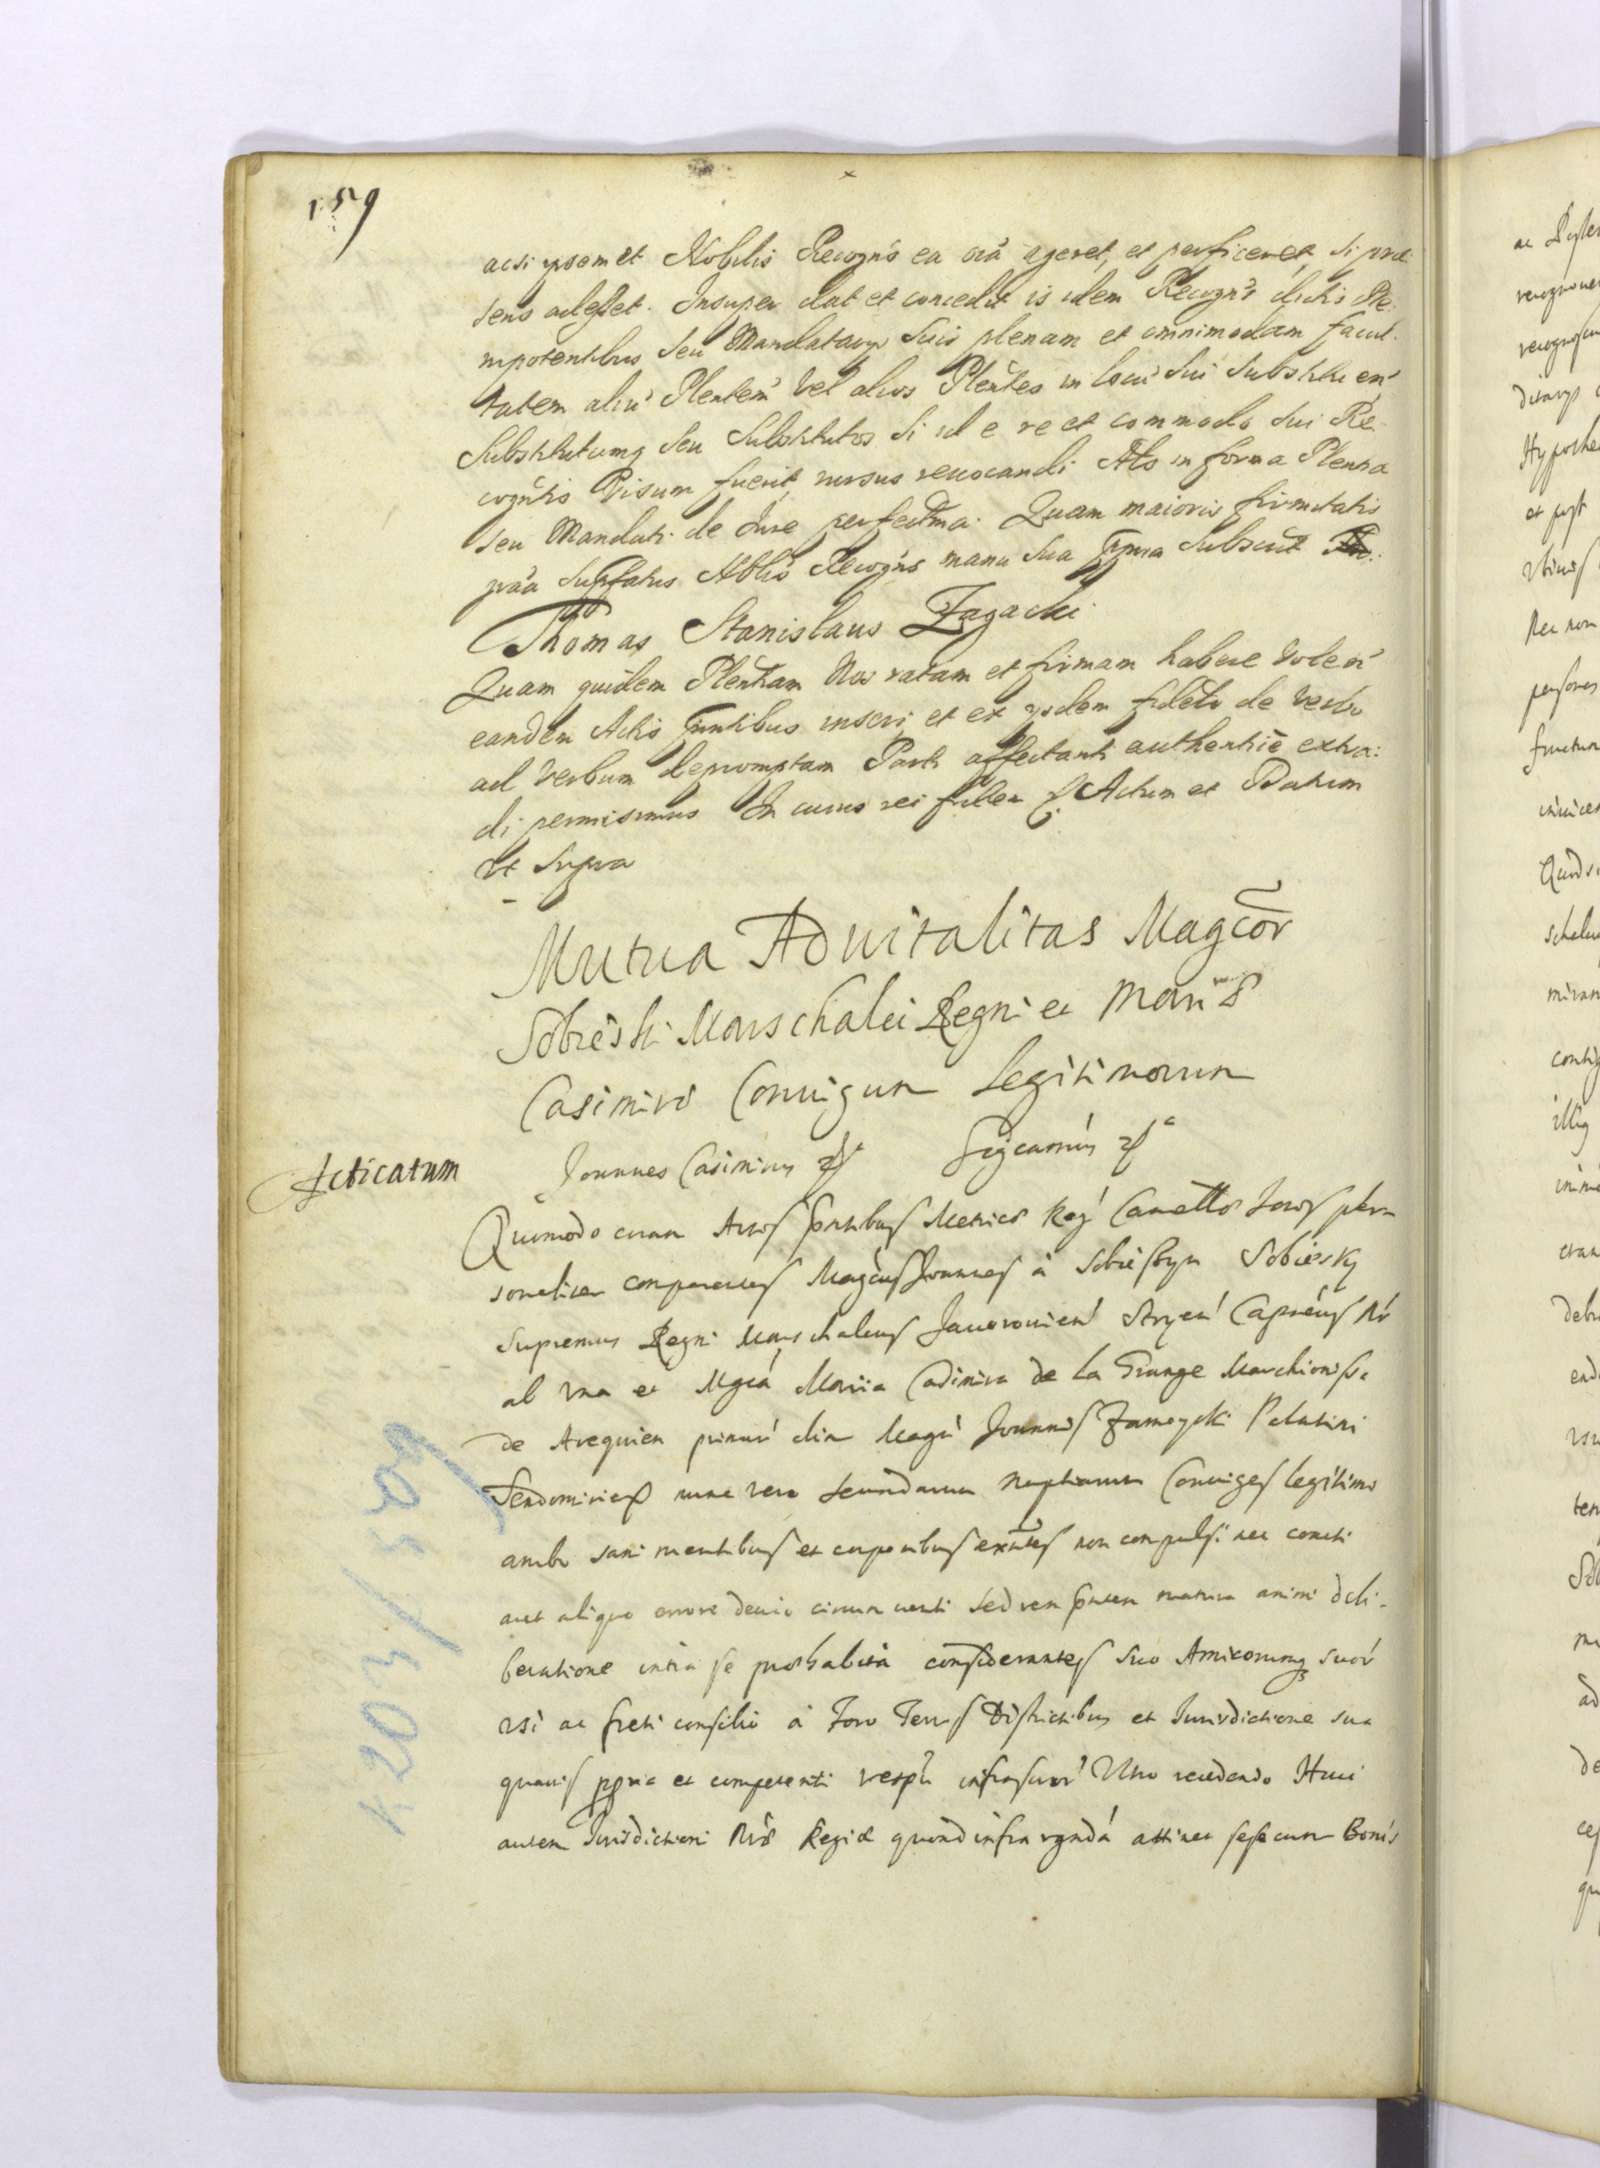 159
ac si ipsemet Nobilis Recogn's ea oia ageret, et perficeret si prae
sens adesset. Insuper dat et concedit is idem Recogn's dictis Ple:
nipotentibus seu Mandatarys suis plenam et omnimodam facul-
tatem aliu' Plentem' vel alios Plentes in locu' sui substituen'
Substitutumq seu Substitutos si id e re et commodo sui Re-
cogntis Visum fuerit, rursus revocandi Ats in forma Plentia
seu Mandati de Jure perfectma. Quam maioris firmitatis
gr'a Supfatus Nblis Recogns manu sua ppria subscrit
Thomas Stanislaus Zagacki
Quam quidem Plentiam Nos ratam et firmam habere volen'
eandem Actis pnntibus inseri, et ex ysdem fidelr de verbo
ad verbum depromptam Parti affectanti authentice extra:
di permisimus In cuius rei fidem Actum et Datum
Ut Supra
Mutua Advitalitas Magcor
Sobieski Marschalci Regni et Mariae
Casimirae Coniugum Legitimorum
Acticatum
Joannes Casimirus Significamus
Quomodo coram Actis pntibus Metrices Reg' Cancellae Maioris per-
sonaliter comparentes Magcus Joannes à Sobieszyn Sobiesky
Supremus Regni Marschalcus Javorovien' Stryen' Capneus Nr
ab una et Mgca' Maria Casimira de la Grange Marchionissa
de Arequien primu' olim Magci Joannis Zamoyski Palatini
Sendomirien nunc vero secundarum nuptiarum Coniuges legitimi
ambo sani mentibus et corporibus exntes non compulsi nec coacti
aut aliquo errore devio circumventi sed rem pntem matura animi deli-
beratione intra se praehabita considerantes suo Amicorumq suor'
usi ac freti consilio à Foro Terris Districtibus et Jurisdictione sua
quavis ppria et competenti resptu infrascrior' Uhro recedendo Huic
autem Jurisdictioni Nrae Regiae quoad infra rgnda' attinet sese cum Bonis
K 203/159